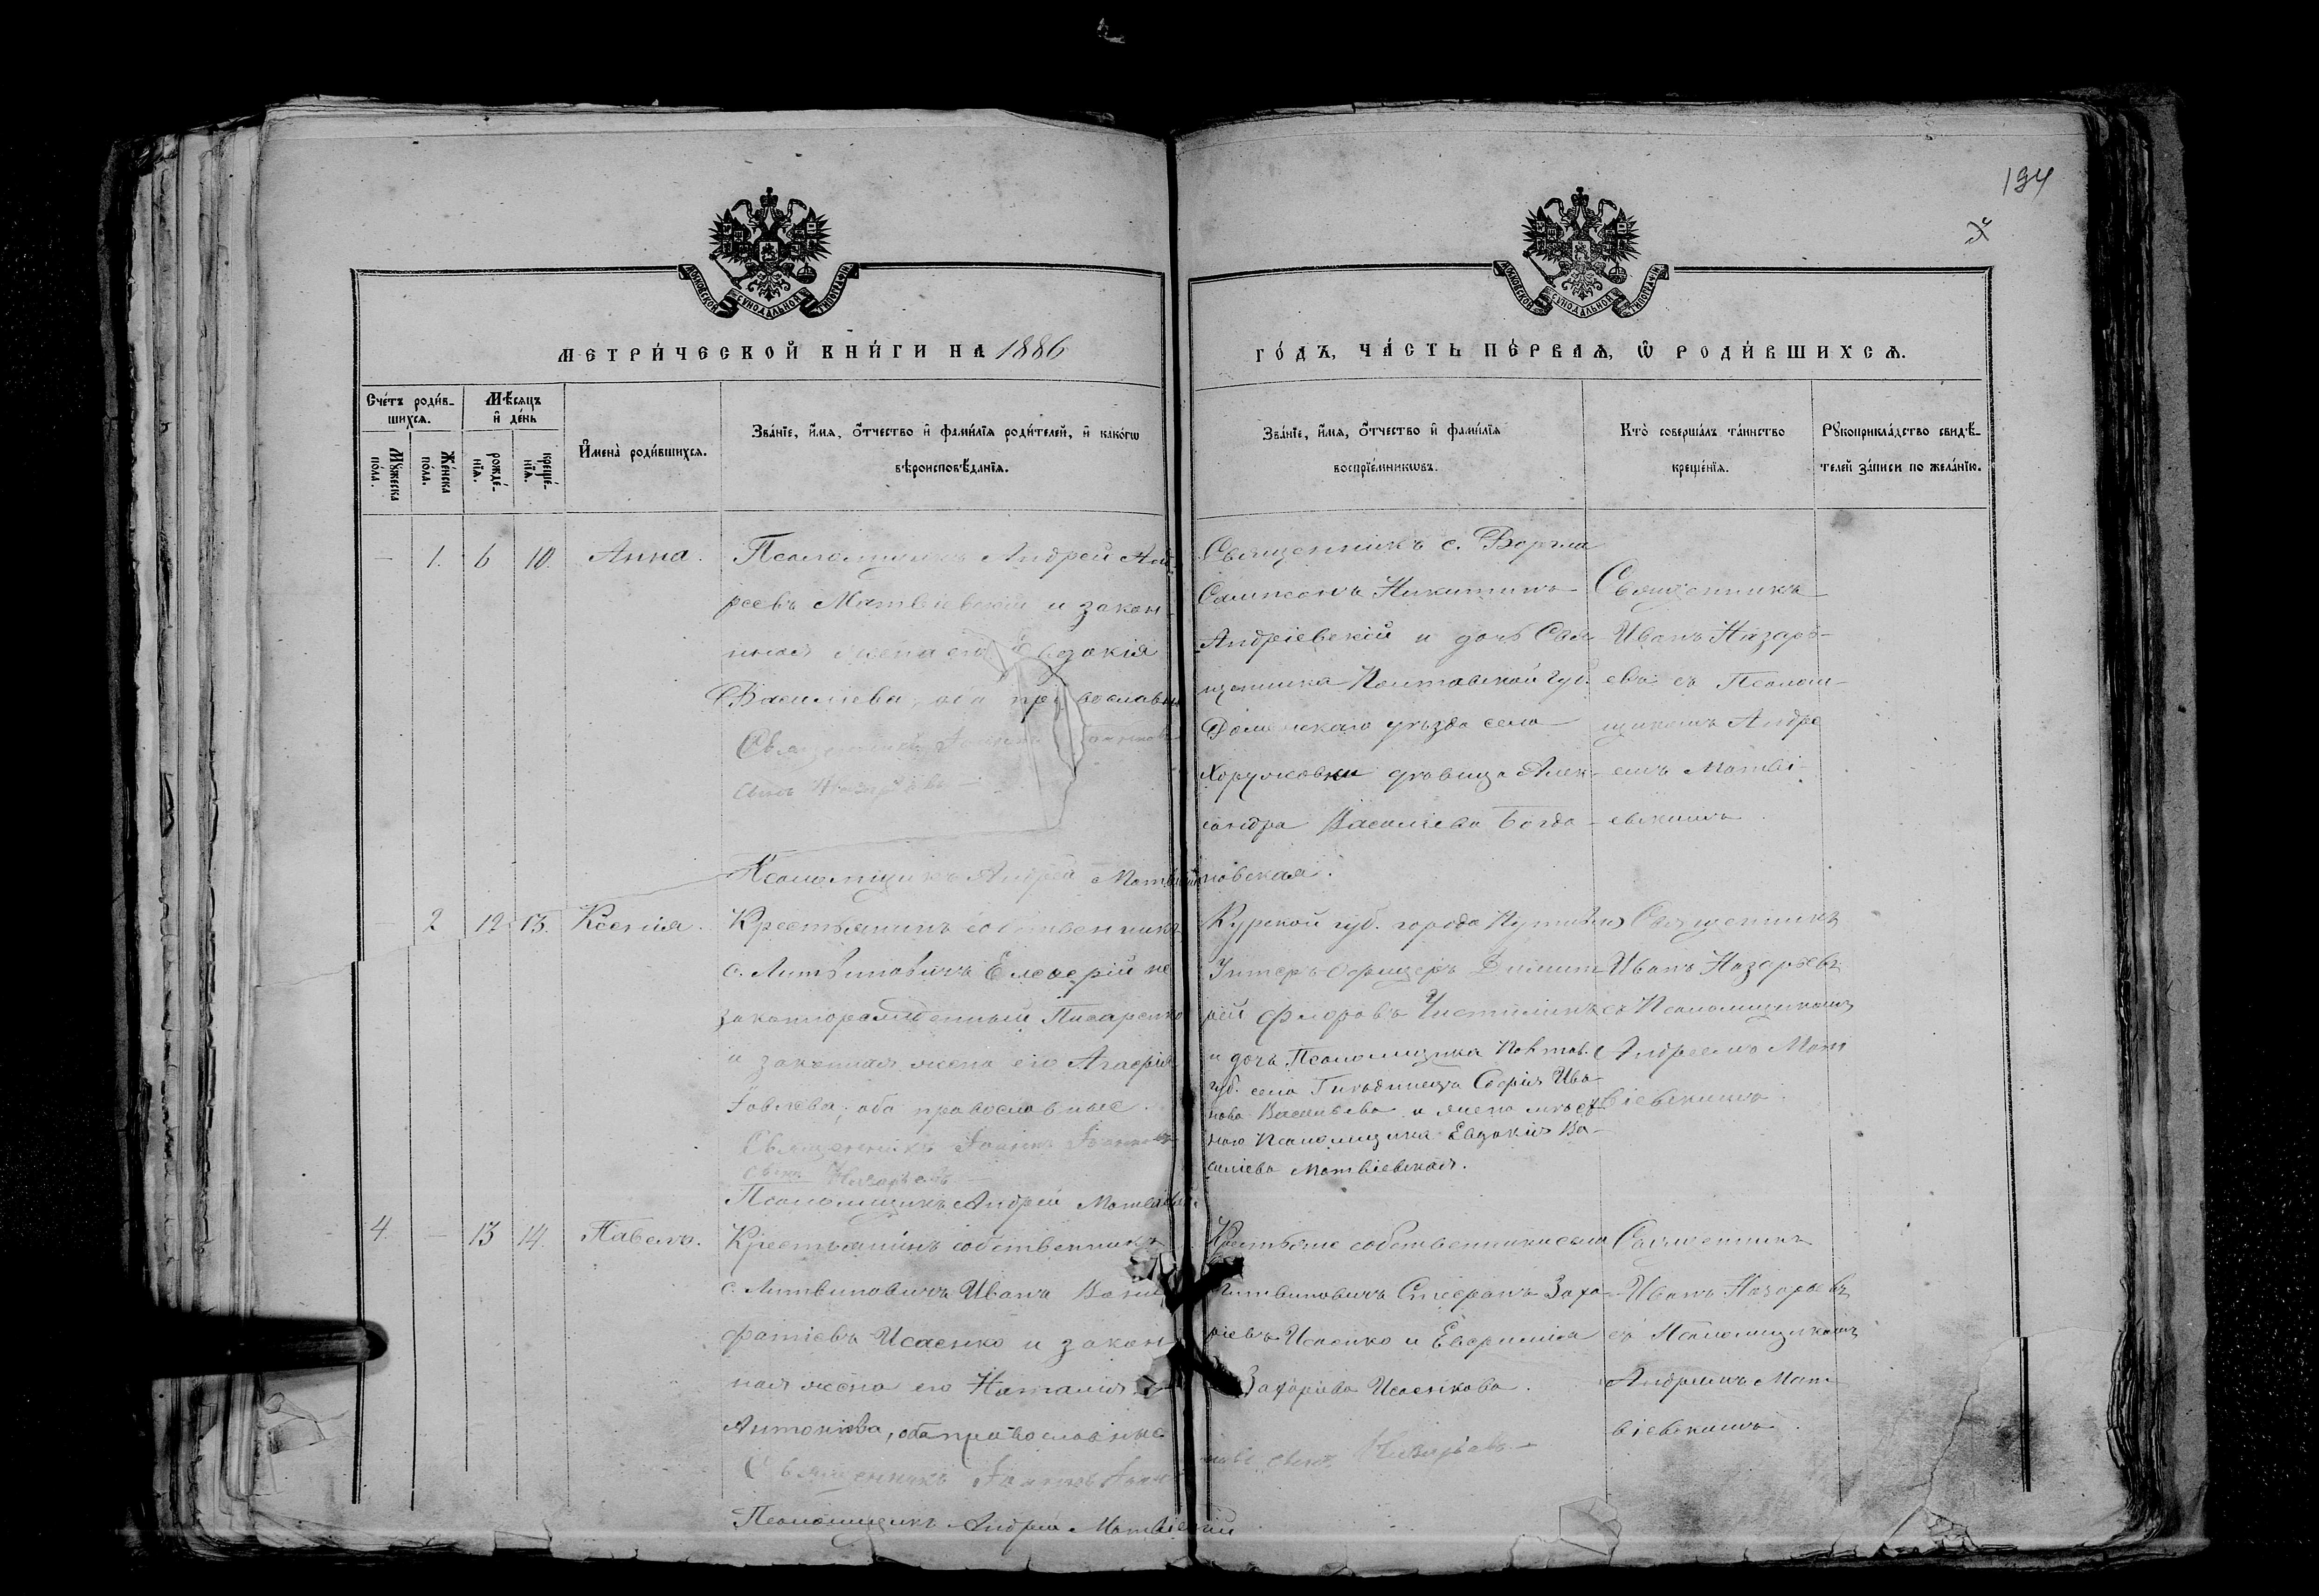 194
МОСКОВСКОЙ СѴНОДАЛЬНОЙ ТИПОГРАФІИ
МОСКОВСКОЙ СѴНОДАЛЬНОЙ ТИПОГРАФІИ
МЕТРИ́ЧЕСКОЙ КНИ́ГИ НА 1886
ГО́ДЪ, ЧА́СТЬ ПЕ́РВАѦ, Ѡ҆ РОДИ́ВШИХСѦ.
Сче́тъ роди́в-
шихсѧ.
Мꙋжеска
по́ла.
Же́нска
по́ла.
Мѣ́сѧцъ
и҆ де́нь
рожде́-
нїѧ.
креще́-
нїѧ.
И҆мена̀ роди́вшихсѧ.
Зва́нїе, и҆́мѧ, ѻ҆́тчество и҆ фами́лїѧ роди́телей, и҆ како́гѡ
вѣроисповѣ́данїѧ.
Зва́нїе, и҆́мѧ, ѻ҆́тчество и҆ фами́лїѧ
воспрїе́мникѡвъ.
Кто̀ соверша́лъ та́инство
креще́нїѧ.
Рꙋкоприкла́дство свидѣ́-
телей за́писи по жела́нїю.
— 1. 6 10. Анна.
Псаломщикъ Андрей Анд-
реевъ Матвіевскій и закон-
ная жена его Евдокія
Василіева, оба православн
Священникъ Іоаннъ
сынъ Назарьевъ —
Псаломщикъ Андрей Матвіевскій
Священникъ с.
Сампсонъ Никитинъ
Андріевскій и дочь Свя-
щенника Полтавской губ.
уѣзда села
Хоружовки дѣвица Алек-
сандра Василіева Богда-
новская.
Священникъ
Иванъ Назарь-
евъ съ Псалом-
щикомъ Андре
емъ Матві-
евскимъ.
2 12 13. Ксенія.
Крестьянинъ собственникъ
с. Литвиновичъ Елевферій не
законнорожденный Писаренко
и законная жена его Агафія
Іовлева, оба православные.
Священникъ Іоаннъ Іоанновъ
сынъ Назарьевъ
Псаломщикъ Андрей Матвіевскій.
Курской губ. города Путивля
Унтеръ-Офицеръ Димит-
рій Флоровъ
и дочь Псаломщика Полтав.
губ. села Софія Ива
нова Васильева и жена мѣст-
наго Псаломщика Евдокія Ва-
силіева Матвіевская.
Священникъ
Иванъ Назарьевъ
съ Псаломщикомъ
Андреемъ Мат
віевскимъ.
4. — 13 14 Павелъ.
Крестьянинъ собственникъ
с. Литвиновичъ Иванъ Вони-
фатіевъ Исаенко и закон-
ная жена его Наталія
Антоніева, оба православные
Священникъ Іоаннъ Іоан-
новъ сынъ Назарьевъ —
Псаломщикъ Андрей Матвіевскій
Крестьяне собственники села
Литвиновичъ Стефанъ Заха-
ріевъ Исаенко и Евфимія
Захаріева Исаенкова.
Священникъ
Иванъ Назарьевъ
съ Псаломщикомъ
Андреемъ Мат
віевскимъ.